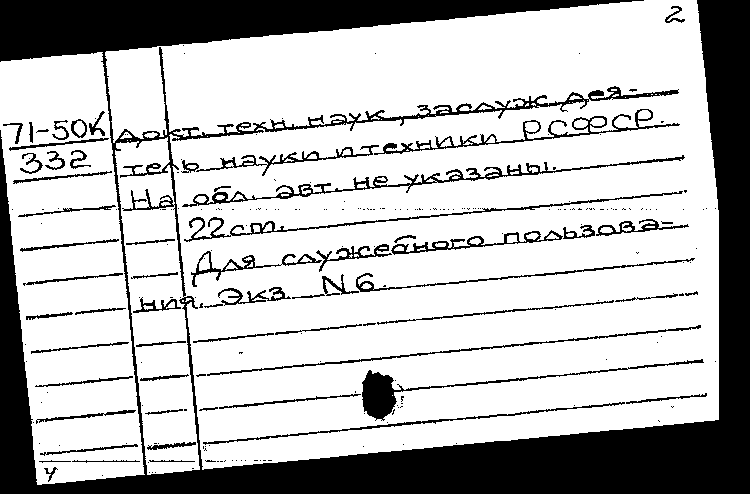 2
71-50К докт. техн. наук, заслуж. дея-
332 тель науки и техники РСФСР.
На обл. авт. не указаны.
22 cm.
Для служебного пользова-
ния. Экз. N 6.